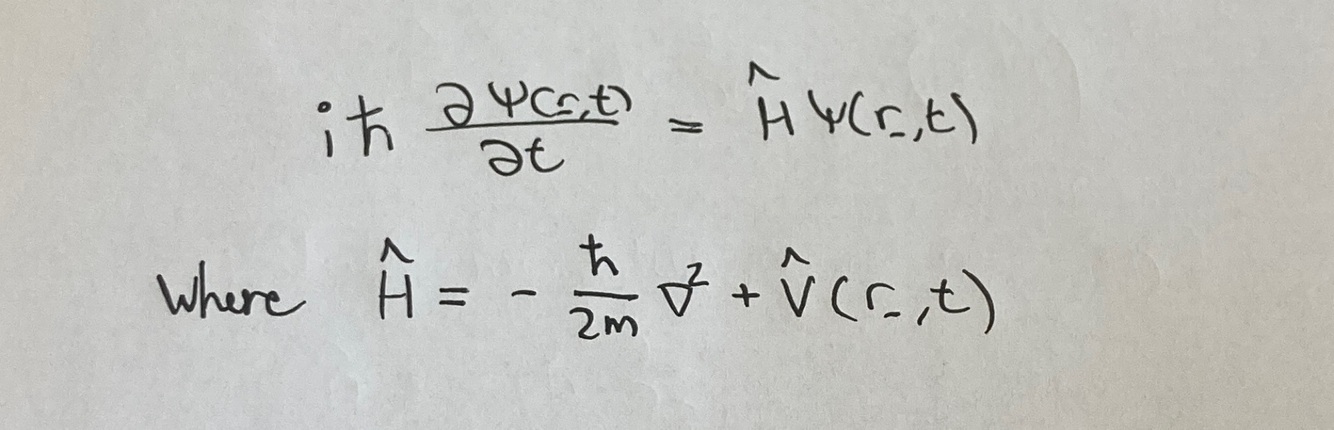 iħ ∂ψ(r̲,t)/∂t = Ĥ ψ(r̲,t)
Where Ĥ = - ħ/2m ∇² + V̂(r̲,t)